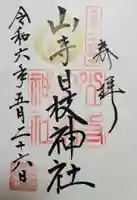 奉拝
山寺日枝神社
令和六年五月二十六日